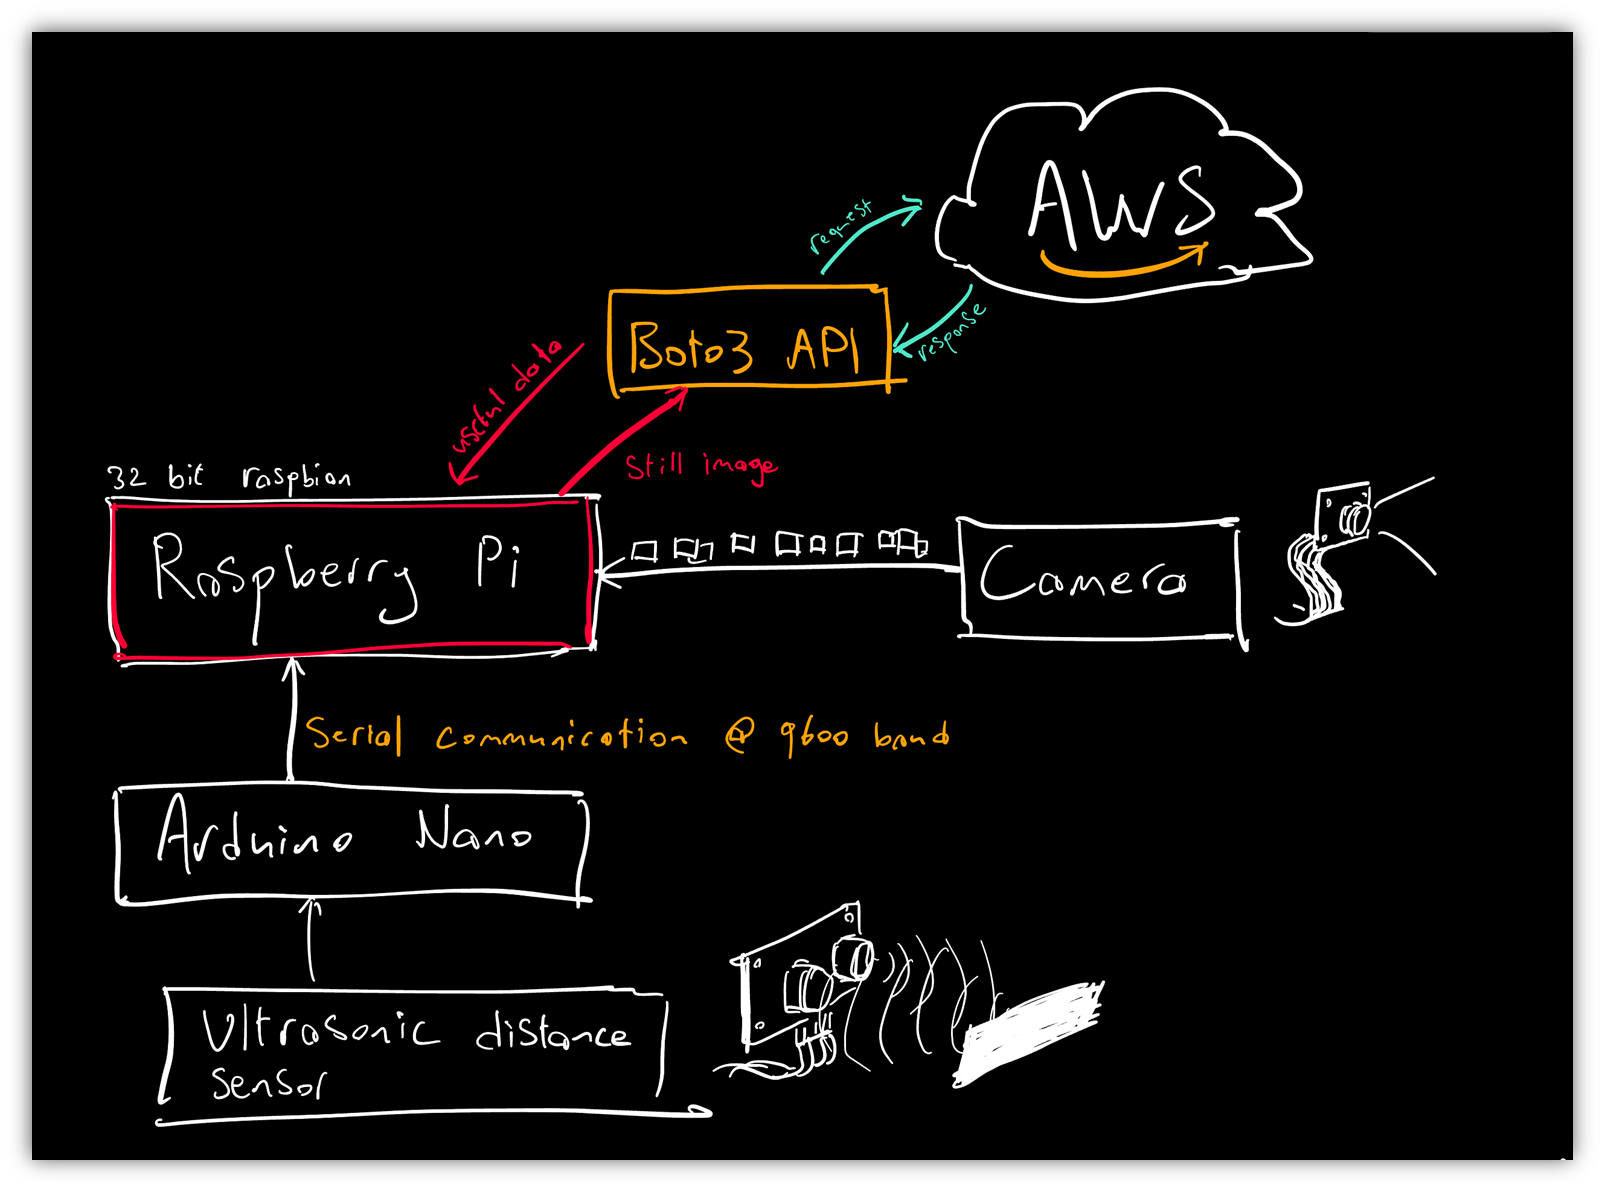 AWS
request
response
Boto3 API
useful data
Still image
32 bit raspbion
Raspberry Pi
Camera
Serial communication @ 9600 baud
Arduino Nano
Ultrasonic distance
sensor